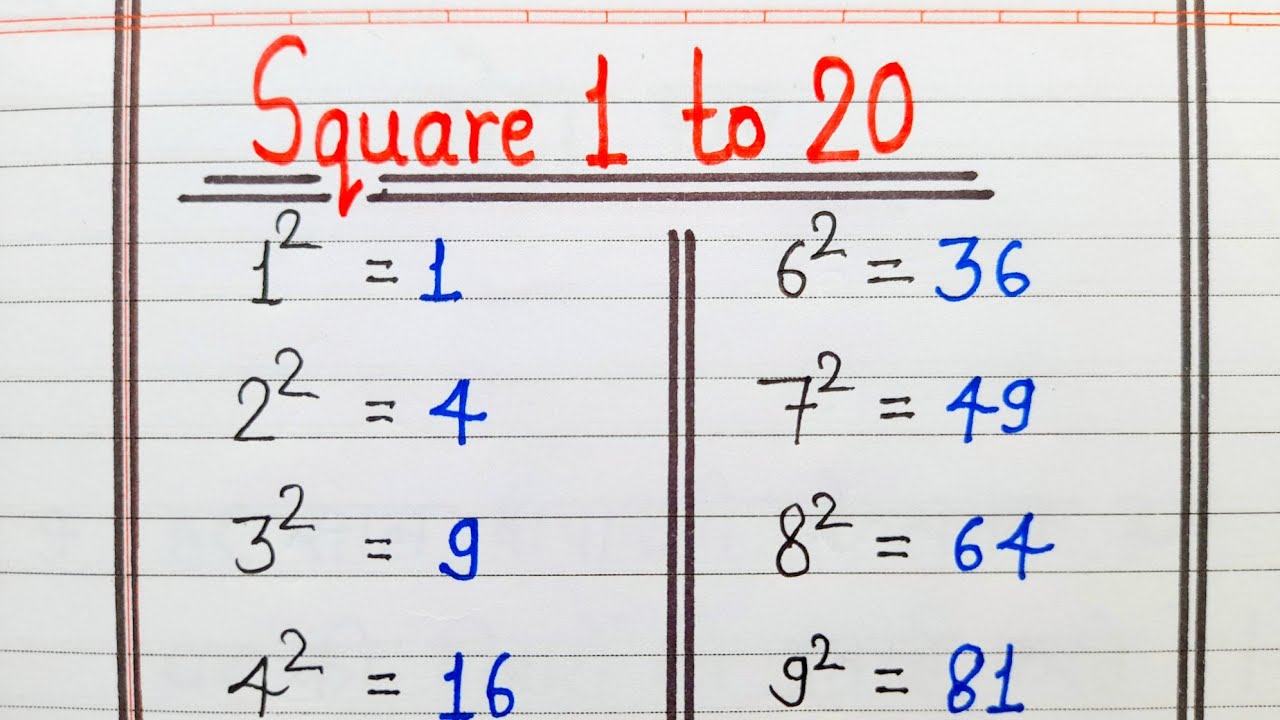 Square 1 to 20
1² = 1
2² = 4
3² = 9
4² = 16
6² = 36
7² = 49
8² = 64
9² = 81